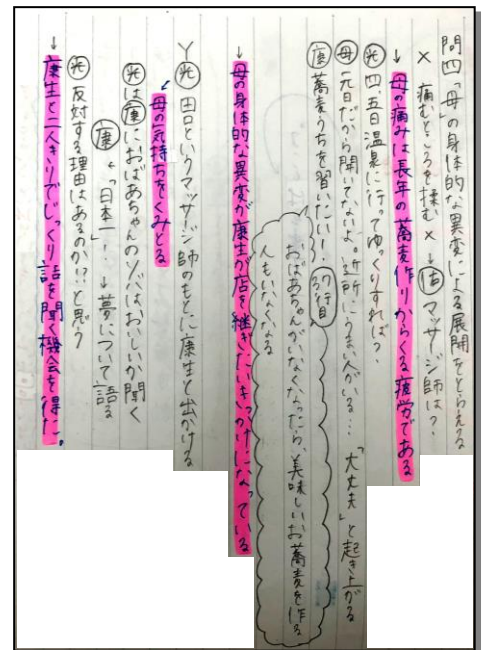 問四「母」の身体的な異変による展開をとらえる
× 痛むところを揉む × → マッサージ師は?
↓ 母の痛みは長年の蕎麦作りからくる疲労である
光 四、五日温泉に行ってゆっくりすれば?
母 元日だから開いてないよ。近所にうまい人がいる… 「大丈夫」と起き上がる
康 蕎麦うちを習いたい! 37行目
おばあちゃんがいなくなったら、美味しいお蕎麦を作る
人もいなくなる
↓ 母の身体的な異変が康生が店を継ぎたいきっかけになっている
光 田口というマッサージ師のもとに康生と出かける
母の気持ちをくみとる
光は康におばあちゃんのソバはおいしいか聞く
康 ←「日本一」… → 夢について語る
光 反対する理由はあるのか?と思う
↓ 康生と二人きりでじっくり話を聞く機会を得た。